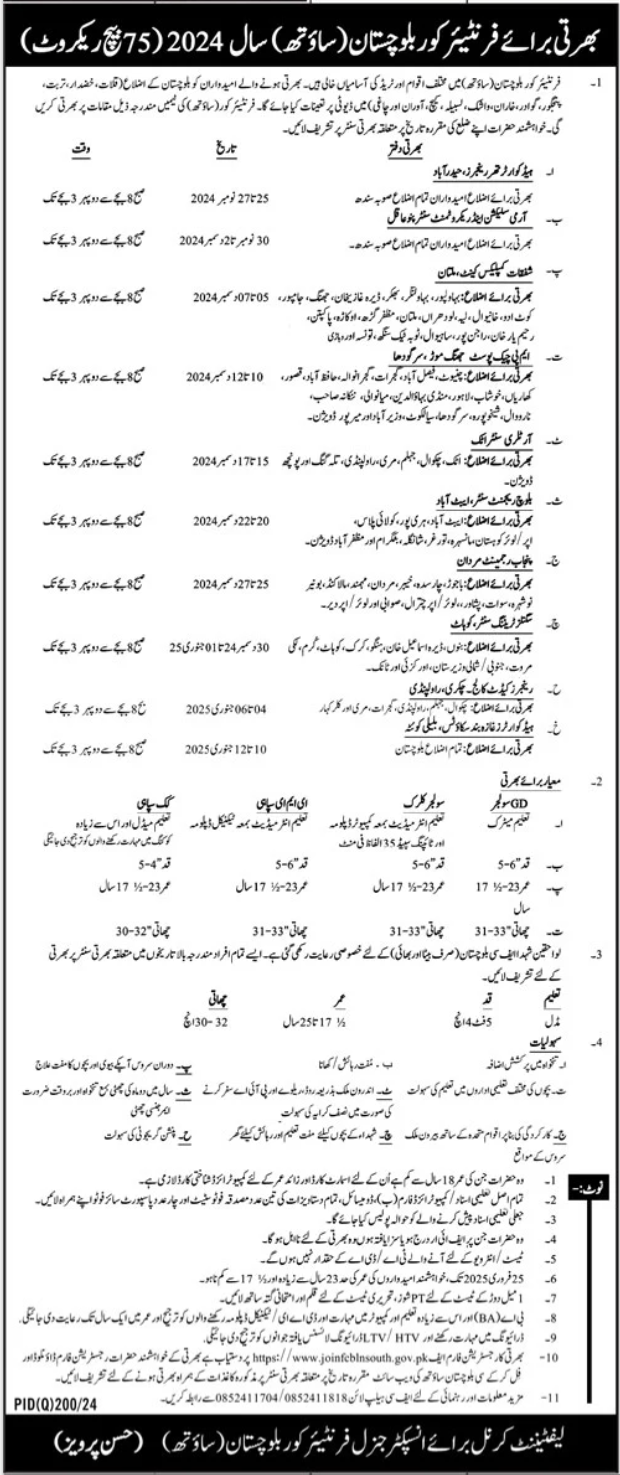 بھرتی برائے فرنٹیئر کور بلوچستان (ساؤتھ) سال 2024 (75 بیچ ریکروٹ)
1- فرنٹیئر کور بلوچستان (ساؤتھ) میں مختلف اقوام اور ٹریڈ کی آسامیاں خالی ہیں۔ بھرتی ہونے والے امیدواران کو بلوچستان کے اضلاع (قلات، خضدار، تربت،
پنجگور، گوادر، خاران، واشک، لسبیلہ، کیچ، آوران اور چاغی) میں ڈیوٹی پر تعینات کیا جائے گا۔ فرنٹیئر کور (ساؤتھ) کی ٹیمیں مندرجہ ذیل مقامات پر بھرتی کریں
گی۔ خواہشمند حضرات اپنے ضلع کی مقررہ تاریخ پر متعلقہ بھرتی سنٹر پر تشریف لائیں۔
بھرتی دفتر تاریخ وقت
ا۔ ہیڈکوارٹر تھر رینجرز، حیدرآباد
بھرتی برائے اضلاع امیدواران تمام اضلاع صوبہ سندھ 25 تا 27 نومبر 2024 صبح 8 بجے سے دوپہر 3 بجے تک
ب۔ آرمی سلیکشن اینڈ ریکروٹمنٹ سنٹر پنوعاقل
بھرتی برائے اضلاع امیدواران تمام اضلاع صوبہ سندھ۔ 30 نومبر تا 2 دسمبر 2024 صبح 8 بجے سے دوپہر 3 بجے تک
پ۔ شفقات کمپلیکس کینٹ، ملتان
بھرتی برائے اضلاع: بہاولپور، بہاولنگر، بھکر، ڈیرہ غازیخان، جھنگ، جامپور، 05 تا 07 دسمبر 2024 صبح 8 بجے سے دوپہر 3 بجے تک
کوٹ ادو، خانیوال، لیہ، لودھراں، ملتان، مظفر گڑھ، اوکاڑہ، پاکپتن،
رحیم یار خان، راجن پور، ساہیوال، ٹوبہ ٹیک سنگھ، تونسہ اور وہاڑی
ت۔ ایم پی چیک پوسٹ جھنگ موڑ، سرگودھا
بھرتی برائے اضلاع: چنیوٹ، فیصل آباد، گجرات، گجرانوالہ، حافظ آباد، قصور، 10 تا 12 دسمبر 2024 صبح 8 بجے سے دوپہر 3 بجے تک
کھاریاں، خوشاب، لاہور، منڈی بہاؤالدین، میانوالی، ننکانہ صاحب،
نارووال، شیخوپورہ، سرگودھا، سیالکوٹ، وزیر آباد اور میر پور ڈویژن۔
ٹ۔ آرٹلری سنٹر اٹک
بھرتی برائے اضلاع: اٹک، چکوال، جہلم، مری، راولپنڈی، تلہ گنگ اور پونچھ 15 تا 17 دسمبر 2024 صبح 8 بجے سے دوپہر 3 بجے تک
ڈویژن۔
ث۔ بلوچ ریجمنٹ سنٹر، ایبٹ آباد
بھرتی برائے اضلاع: ایبٹ آباد، ہری پور، کولائی پلاس، 20 تا 22 دسمبر 2024 صبح 8 بجے سے دوپہر 3 بجے تک
اپر/لوئر کوہستان، مانسہرہ، تورغر، شانگلہ، بٹگرام اور مظفر آباد ڈویژن۔
ج۔ پنجاب رجمینٹ مردان
بھرتی برائے اضلاع: باجوڑ، چارسدہ، خیبر، مردان، مہمند، مالاکنڈ، بونیر 25 تا 27 دسمبر 2024 صبح 8 بجے سے دوپہر 3 بجے تک
نوشہرہ، سوات، پشاور، لوئر/اپر چترال، صوابی اور لوئر/اپر دیر۔
چ۔ سگنلز ٹریننگ سنٹر، کوہاٹ
بھرتی برائے اضلاع: بنوں، ڈیرہ اسماعیل خان، ہنگو، کرک، کوہاٹ، کُرم، لکی 30 دسمبر 24 تا 01 جنوری 25 صبح 8 بجے سے دوپہر 3 بجے تک
مروت، جنوبی/شمالی وزیرستان، اورکزئی اور ٹانک۔
ح۔ رینجرز کیڈٹ کالج، چکری، راولپنڈی
بھرتی برائے اضلاع: چکوال، جہلم، راولپنڈی، گجرات، مری اور کلر کہار 04 تا 06 جنوری 2025 صبح 8 بجے سے دوپہر 3 بجے تک
خ۔ ہیڈ کوارٹرز غازہ بند سکاؤٹس، بلیلی کوئٹہ
بھرتی برائے اضلاع: تمام اضلاع بلوچستان 10 تا 12 جنوری 2025 صبح 8 بجے سے دوپہر 3 بجے تک
2- معیار برائے بھرتی
GD سولجر سولجر کلرک ای ایم ای سپاہی کک سپاہی
ا۔ تعلیم میٹرک تعلیم انٹر میڈیٹ بمعہ کمپیوٹر ڈپلومہ تعلیم انٹر میڈیٹ بمعہ ٹیکنیکل ڈپلومہ تعلیم میڈل اور اس سے زیادہ
اور ٹائپنگ سپیڈ 35 الفاظ فی منٹ کوکنگ میں مہارت رکھنے والوں کو ترجیح دی جائیگی
ب۔ قد "6-5 قد "6-5 قد "6-5 قد "4-5
پ۔ عمر 23-½ 17 عمر 23-½ 17 سال عمر 23-½ 17 سال عمر 23-½ 17 سال
سال
ت۔ چھاتی "33-31 چھاتی "33-31 چھاتی "33-31 چھاتی "32-30
3- لواحقین شہدا ایف سی بلوچستان (صرف بیٹا اور بھائی) کے لئے خصوصی رعایت رکھی گئی ہے۔ ایسے تمام افراد مندرجہ بالا تاریخوں میں متعلقہ بھرتی سنٹر پر بھرتی
کے لئے تشریف لائیں۔
تعلیم قد عمر چھاتی
مڈل 5 فٹ 4 انچ ½ 17 تا 25 سال 32-30 انچ
4- سہولیات
ا۔ تنخواہ میں پرکشش اضافہ ب۔ مفت رہائش/کھانا پ۔ دوران سروس آپکے بیوی اور بچوں کا مفت علاج
ت۔ بچوں کی مختلف تعلیمی اداروں میں تعلیم کی سہولت ٹ۔ اندرون ملک بذریعہ روڈ، ریلوے اور پی آئی اے سفر کرنے ث۔ سال میں دو ماہ کی چھٹی بمع تنخواہ اور بروقت ضرورت
کی صورت میں نصف کرایہ کی سہولت ایمرجنسی چھٹی
ج۔ کارکردگی کی بنا پر اقوام متحدہ کے ساتھ بیرون ملک چ۔ شہداء کے بچوں کیلئے مفت تعلیم اور رہائش کیلئے گھر ح۔ پنشن گریجوٹی کی سہولت
سروس کے مواقع
نوٹ:-
1- وہ حضرات جن کی عمر 18 سال سے کم ہے اُن کے لئے اسمارٹ کارڈ اور زائد عمر کے لئے کمپیوٹرائزڈ شناختی کارڈ لازمی ہے۔
2- تمام اصل تعلیمی اسناد/کمپیوٹرائزڈ فارم (ب)، ڈومیسائل، تمام دستاویزات کی تین عدد مصدقہ فوٹو سٹیٹ اور چار عدد پاسپورٹ سائز فوٹو اپنے ہمراہ لائیں۔
3- جعلی تعلیمی اسناد پیش کرنے والے کو حوالہ پولیس کیا جائے گا۔
4- وہ حضرات جن پر ایف آئی ار درج ہو یا سزا یافتہ ہوں وہ بھرتی کے لئے نااہل ہو گا۔
5- ٹیسٹ/انٹرویو کے لئے آنے والے ٹی اے/ڈی اے کے حقدار نہیں ہوں گے۔
6- 25 فروری 2025 تک، خواہشمند امیدواروں کی عمر کی حد 23 سال سے زیادہ اور ½ 17 سے کم نا ہو۔
7- 1 میل دوڑ کے ٹیسٹ کے لئے PT شوز، تحریری ٹیسٹ کے لئے قلم اور امتحانی گتہ ساتھ لائیں۔
8- بی اے (BA) اور اس سے زیادہ تعلیم اور کمپیوٹر میں مہارت اور ڈی اے ای/ٹیکنیکل ڈپلومہ رکھنے والوں کو ترجیح اور عمر میں ایک سال تک رعایت دی جائیگی۔
9- ڈرائیونگ میں مہارت رکھنے اور LTV/HTV ڈرائیونگ لائسنس یافتہ جوانوں کو ترجیح دی جائیگی۔
10- بھرتی کا رجسٹریشن فارم ایف https://www.joinfcblnsouth.gov.pk پر دستیاب ہے بھرتی کے خواہشمند حضرات رجسٹریشن فارم ڈاؤنلوڈ اور
فل کر کے سی بلوچستان ساؤتھ کی ویب سائٹ مقررہ تاریخ پر متعلقہ بھرتی سنٹر پر مذکورہ کاغذات کے ہمراہ بھرتی ہونے کے لئے تشریف لائیں۔
11- مزید معلومات اور رہنمائی کے لئے ایف سی ہیلپ لائن 0852411818/0852411704 سے رابطہ کریں۔
PID(Q)200/24
لیفٹیننٹ کرنل برائے انسپکٹر جنرل فرنٹیئر کور بلوچستان (ساؤتھ) (حسن پرویز)